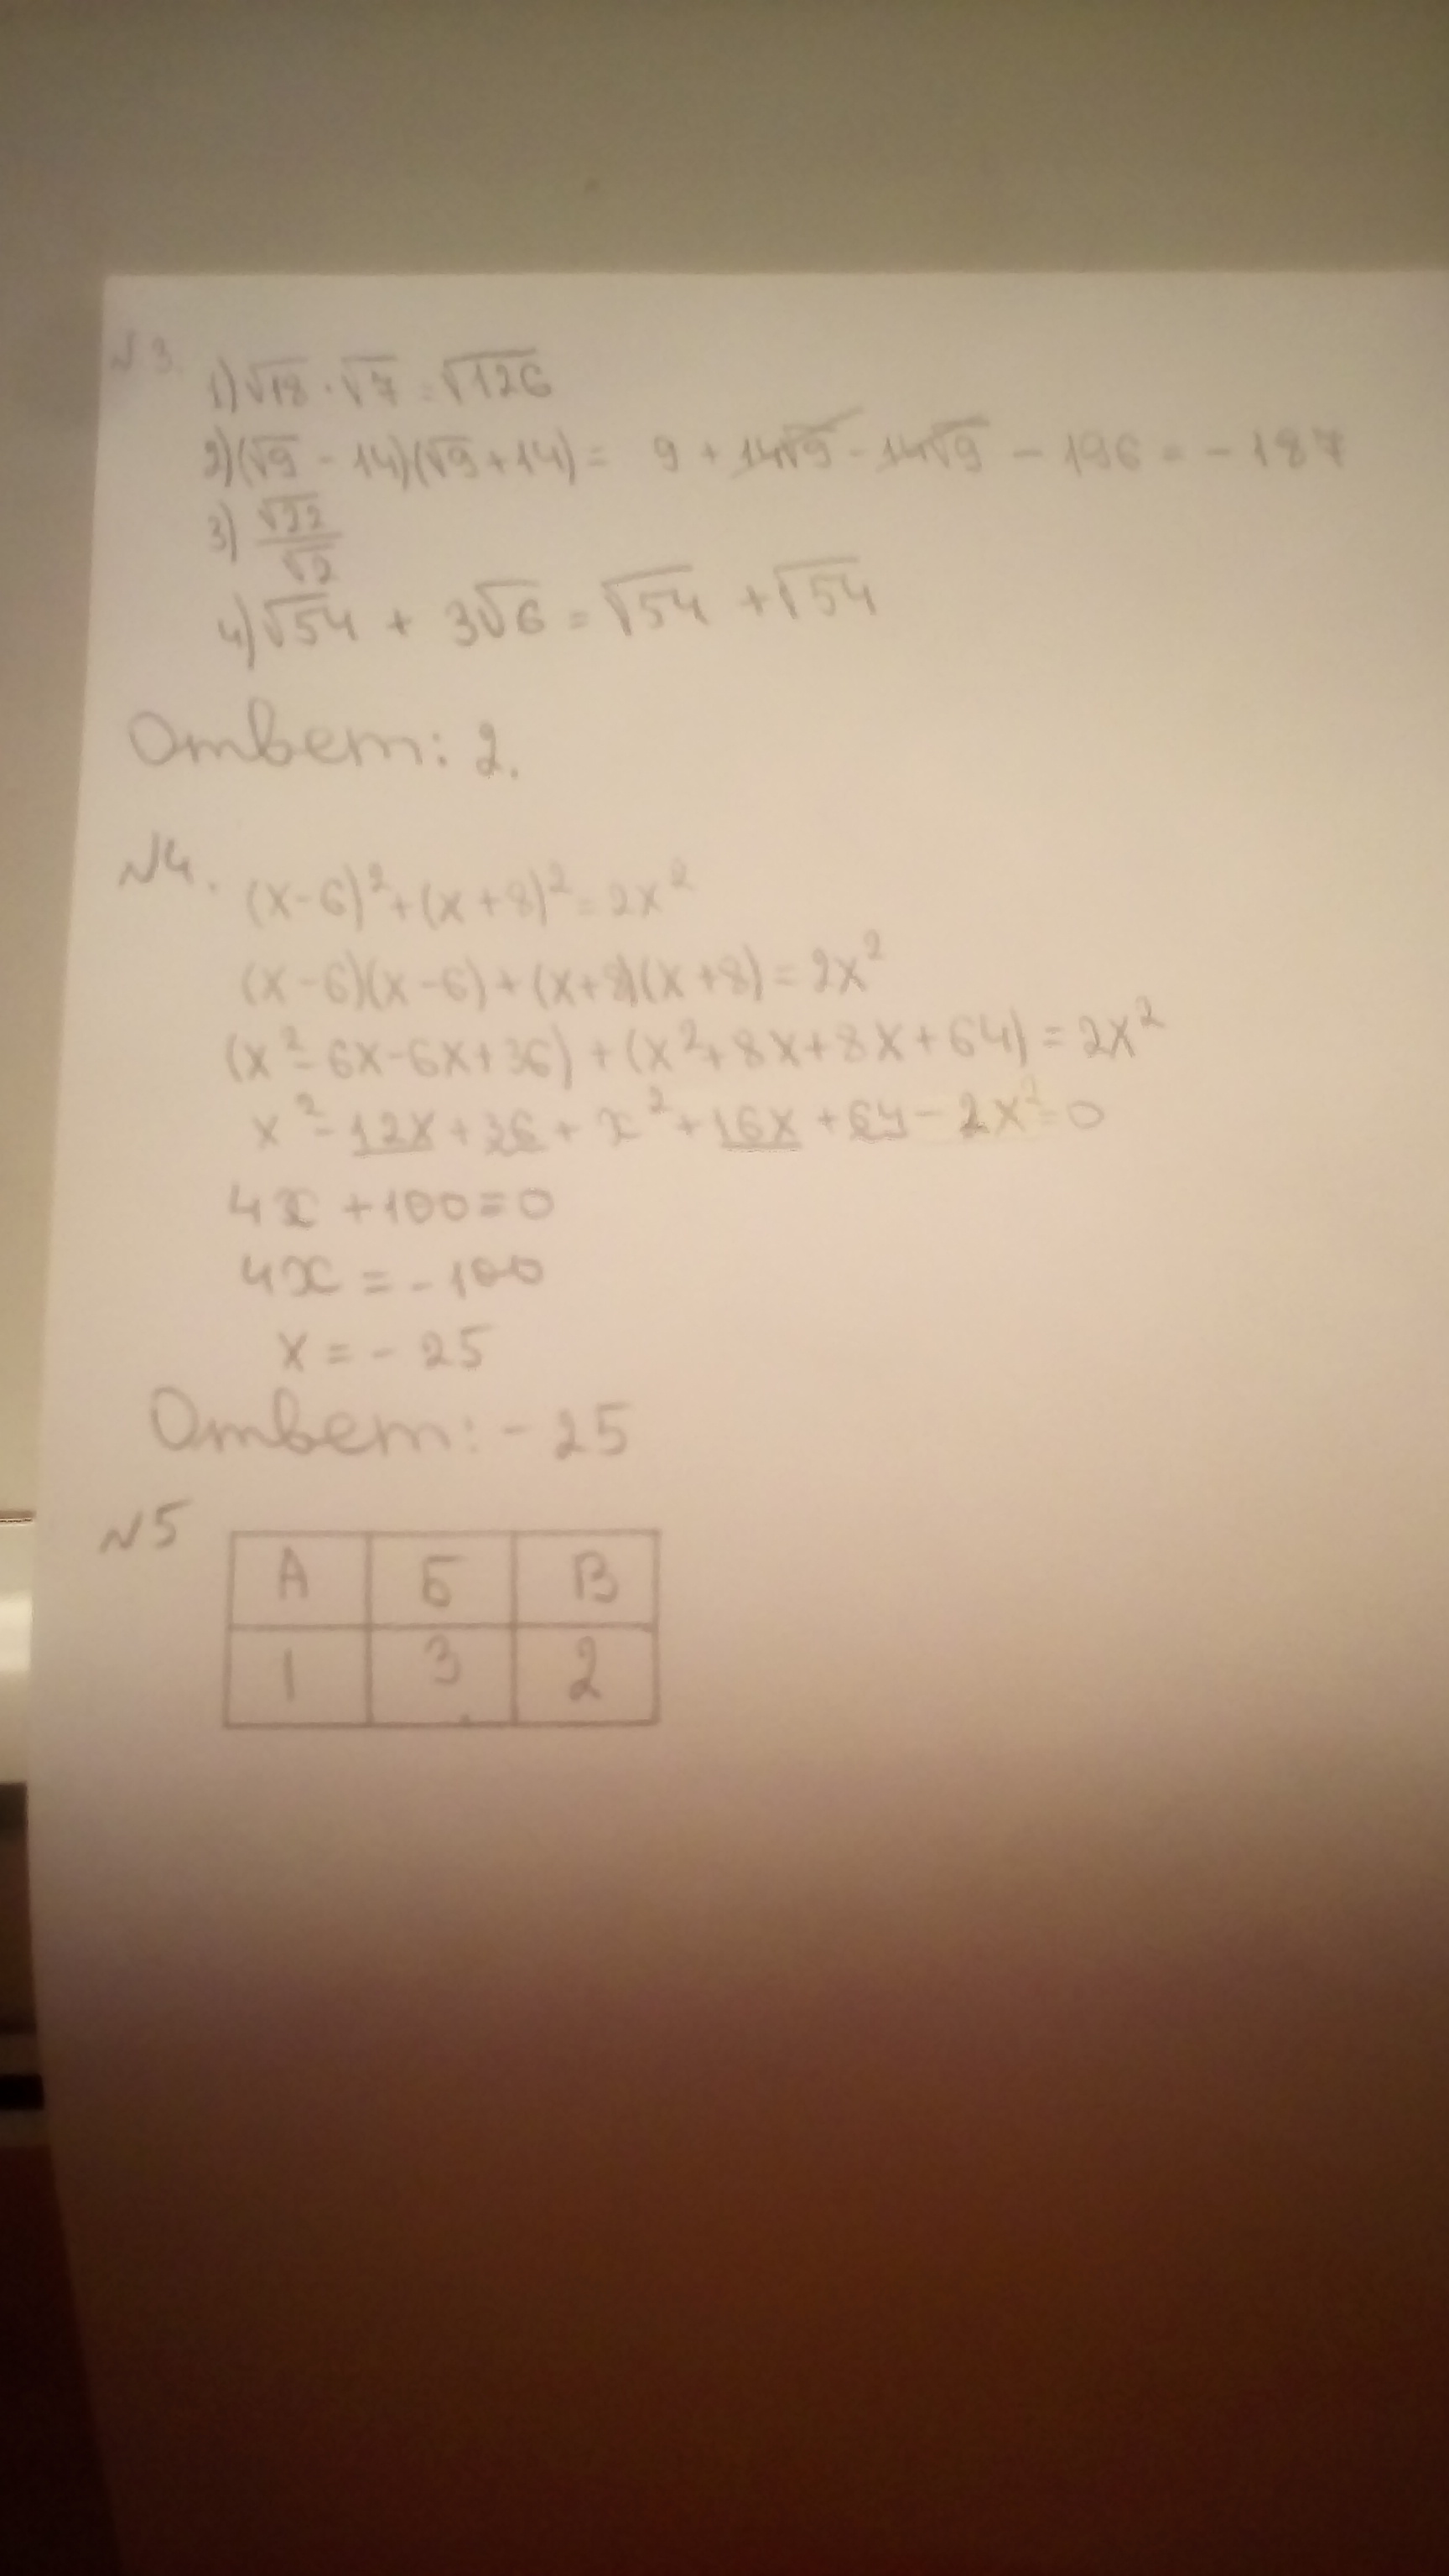 №3.
1) √18 · √7 = √126
2) (√9 - 14)(√9 + 14) = 9 + 14√9 - 14√9 - 196 = - 187
3) √22/√2
4) √54 + 3√6 = √54 + √54
Ответ: 2.
№4.
(x-6)² + (x+8)² = 2x²
(x-6)(x-6) + (x+8)(x+8) = 2x²
(x² - 6x - 6x + 36) + (x² + 8x + 8x + 64) = 2x²
x² - 12x + 36 + x² + 16x + 64 - 2x² = 0
4x + 100 = 0
4x = - 100
x = - 25
Ответ: - 25
№5
А Б В
1 3 2